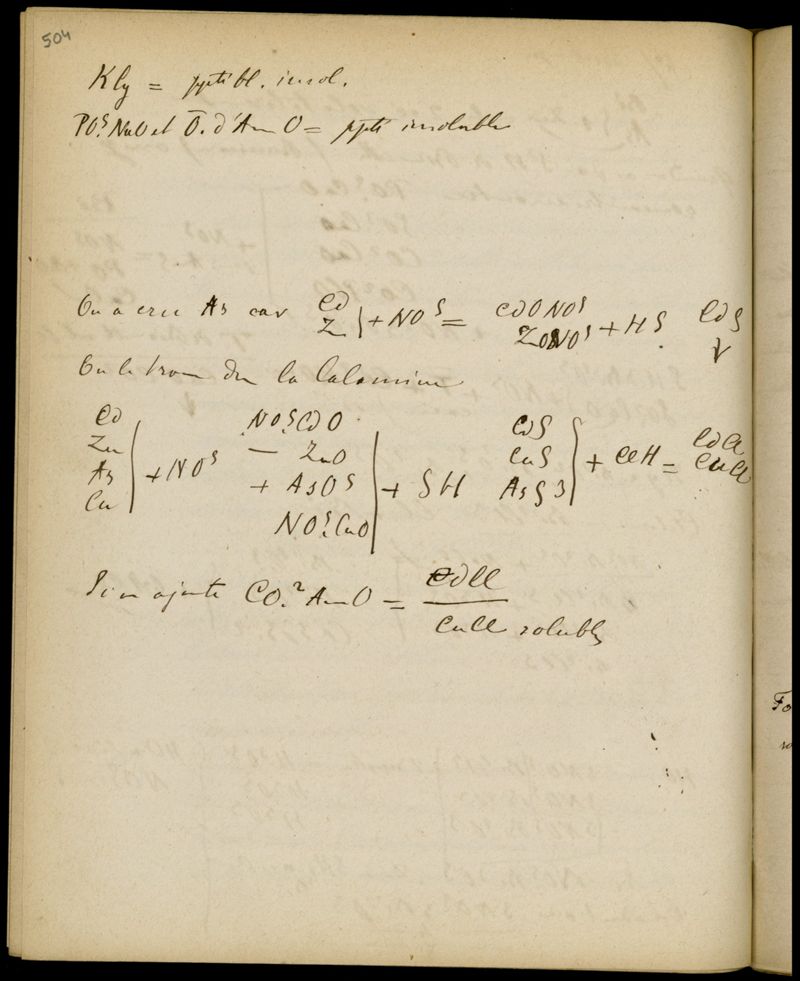 504
KCy = ppté bl. insol.
PO5. NaO et O. d'AmO = ppté insoluble
On a cru As car Cd Zn } + NO5 = CdO NO5 ZnO NO5 + HS CdS ↓
On le trouve la Calamine
Cd Zn As Cu | + NO5 NO5. CdO — ZnO + AsO5 NO5. CuO | + SH CdS CuS AsS3 } + ClH = CdCl CuCl
Si on ajoute CO.2 AmO = CdCl
CuCl soluble
Fo